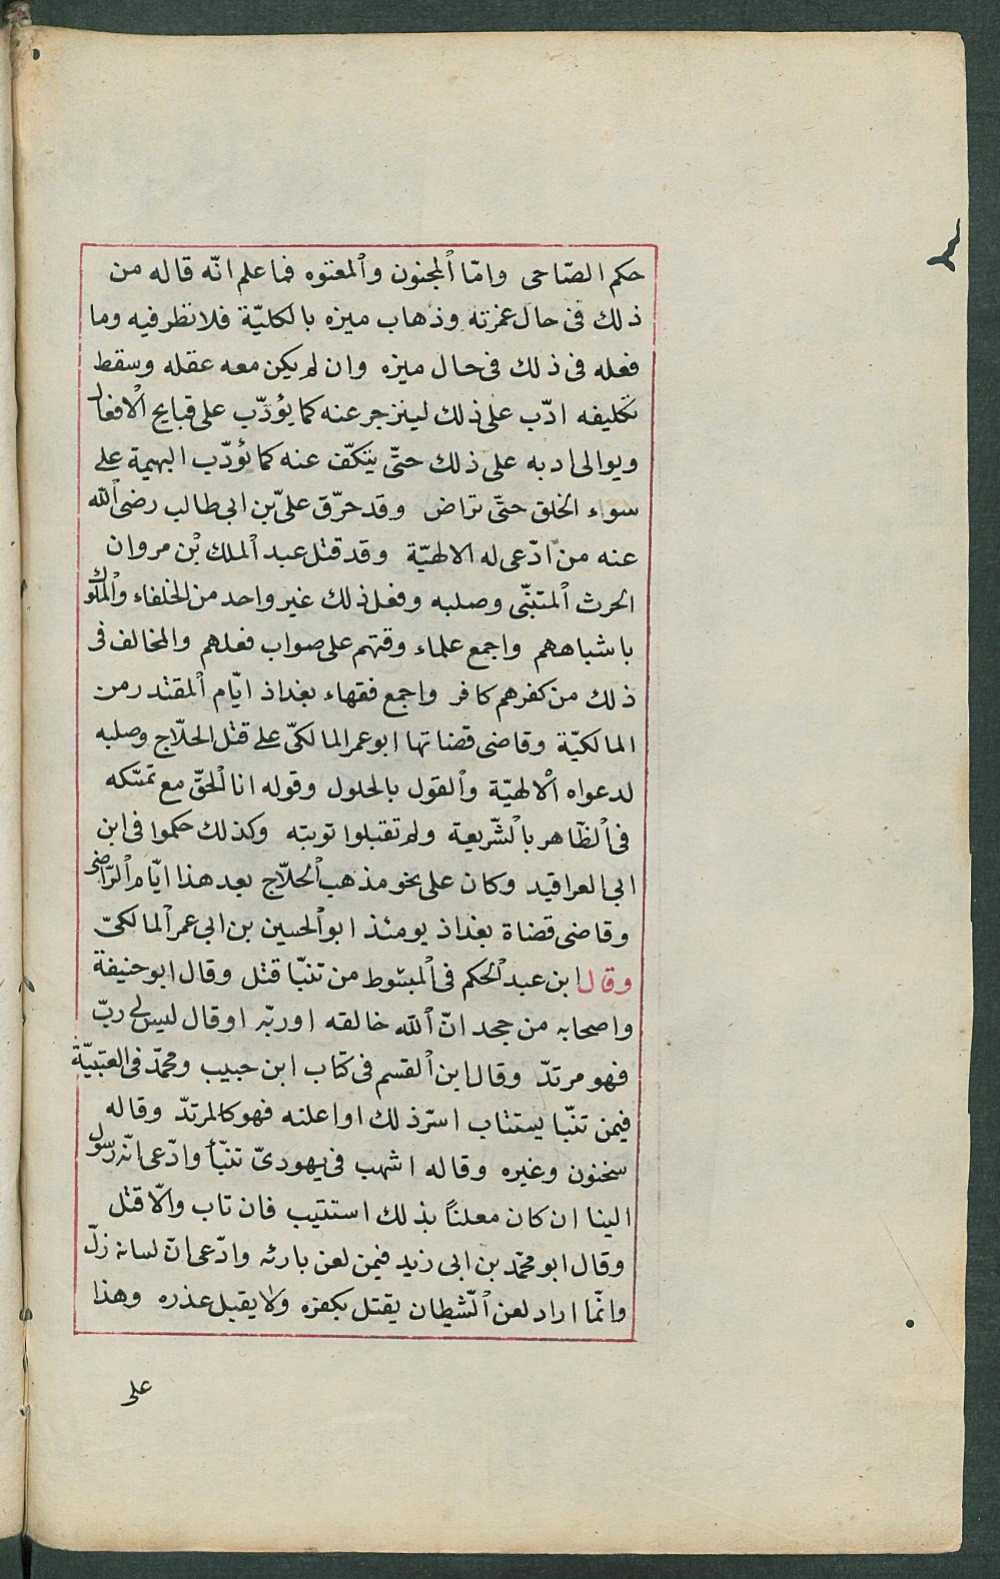 حكم الصّاحى وامّا المجنون والمعتوه فما علم انّه قاله من
ذلك فى حال غمرته وذهاب ميزه بالكليّة فلا نظر فيه وما
فعله فى ذلك فى حال ميزه وان لم يكن معه عقله وسقط
تكليفه ادّب على ذلك لينزجر عنه كما يؤدّب على قبايح الافعال
ويوالى ادبه على ذلك حتّى يتكفّ عنه كما تؤدّب البهيمة على
سواء الخلق حتّى تراض وقد حرّق علىّ بن ابى طالب رضى الله
عنه من ادّعى له الالهيّة وقد قتل عبد الملك بن مروان
الحرث المتنبّى وصلبه وفعل ذلك غير واحد من الخلفاء والملوك
باشباههم واجمع علماء وقتهم على صواب فعلهم والمخالف فى
ذلك من كفرهم كافر واجمع فقهاء بغداذ ايّام المقتدر من
المالكيّة وقاضى قضاتها ابو عمر المالكىّ على قتل الحلّاج وصلبه
لدعواه الالهيّة والقول بالحلول وقوله انا الحقّ مع تمسّكه
فى الظّاهر بالشّريعة ولم تقبلوا توبته وكذلك حكموا فى ابن
ابى العراقيد وكان على نحو مذهب الحلّاج بعد هذا ايّام الرّاضى
وقاضى قضاة بغداذ يومئذ ابو الحسين بن ابى عمر المالكىّ
وقال ابن عبد الحكم فى المبسوط من تنبّا قتل وقال ابو حنيفة
واصحابه من جحد انّ الله خالقه او ربّه او قال ليس لى ربّ
فهو مرتدّ وقال ابن القسم فى كتاب ابن حبيب ومحمّد فى العتبيّة
فيمن تنبّا يستتاب اسرّ ذلك او اعلنه فهو كالمرتدّ وقاله
سخنون وغيره وقاله اشهب فى يهودىّ تنبّأ وادّعى انّه رسول
الينا ان كان معلنًا بذلك استتيب فان تاب والّا قتل
وقال ابو محمّد بن ابى زيد فيمن لعن بارئه وادّعى انّ لسانه زلّ
وانّما اراد لعن الشّيطان يقتل بكفره ولا يقبل عذره وهذا
على